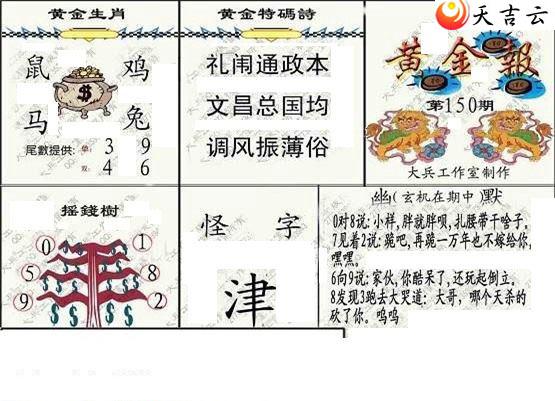 天吉云
黄金生肖
鼠 鸡
马 兔
尾數提供: 单: 3 9
双: 4 6
黄金特碼詩
礼闹通政本
文昌总国均
调风振薄俗
黄金報
第150期
大兵工作室制作
摇錢樹
0 1
5 8
9 2
怪 字
津
幽(玄机在期中)默
0对8说:小样,胖就胖呗,扎腰带干啥子。
7见着2说:跪吧,再跪一万年也不嫁给你,
嘿嘿。
6向9说:家伙,你酷呆了,还玩起倒立。
8发现3跑去大哭道:大哥,哪个天杀的
砍了你。呜呜